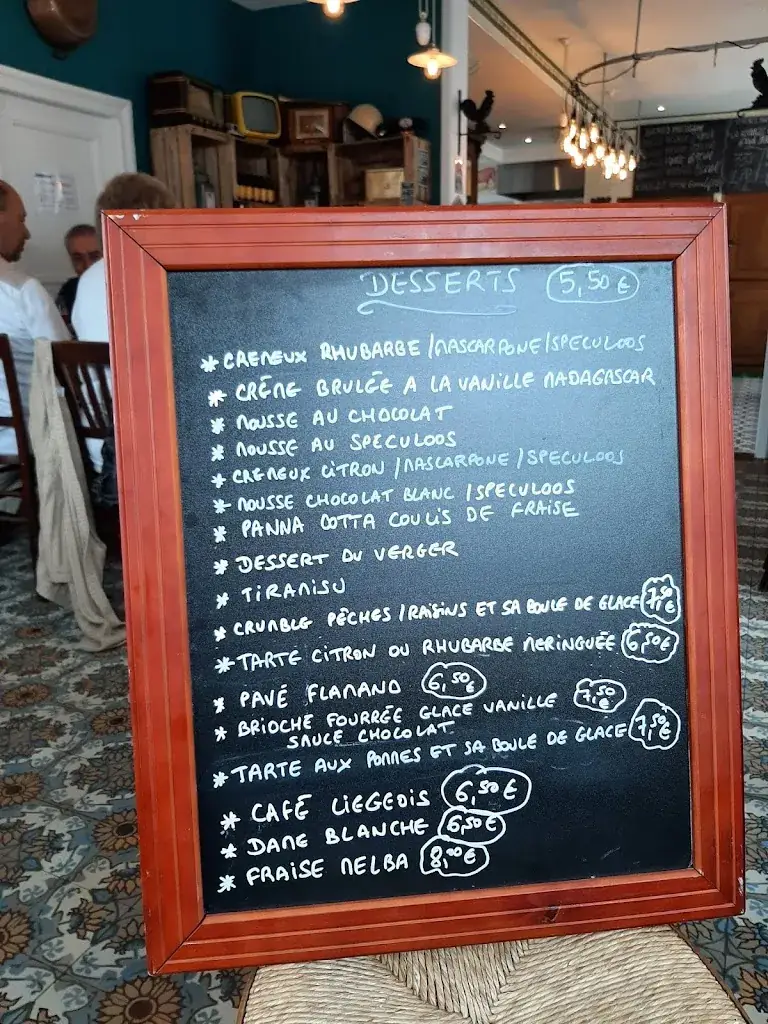 DESSERTS 5,50€
* CREMEUX RHUBARBE / MASCARPONE / SPECULOOS
* CRÊME BRULÉE A LA VANILLE MADAGASCAR
* MOUSSE AU CHOCOLAT
* MOUSSE AU SPECULOOS
* CREMEUX CITRON / MASCARPONE / SPECULOOS
* MOUSSE CHOCOLAT BLANC / SPECULOOS
* PANNA COTTA COULIS DE FRAISE
* DESSERT DU VERGER
* TIRAMISU
* CRUMBLE PÊCHES / RAISINS ET SA BOULE DE GLACE 7,50€
* TARTE CITRON OU RHUBARBE MERINGUÉE 6,50€
* PAVÉ FLAMAND 6,50€
* BRIOCHE FOURRÉE GLACE VANILLE 7,50€
SAUCE CHOCOLAT
* TARTE AUX POMMES ET SA BOULE DE GLACE 7,50€
* CAFÉ LIEGEOIS 6,50€
* DAME BLANCHE 6,50€
* FRAISE MELBA 8,00€